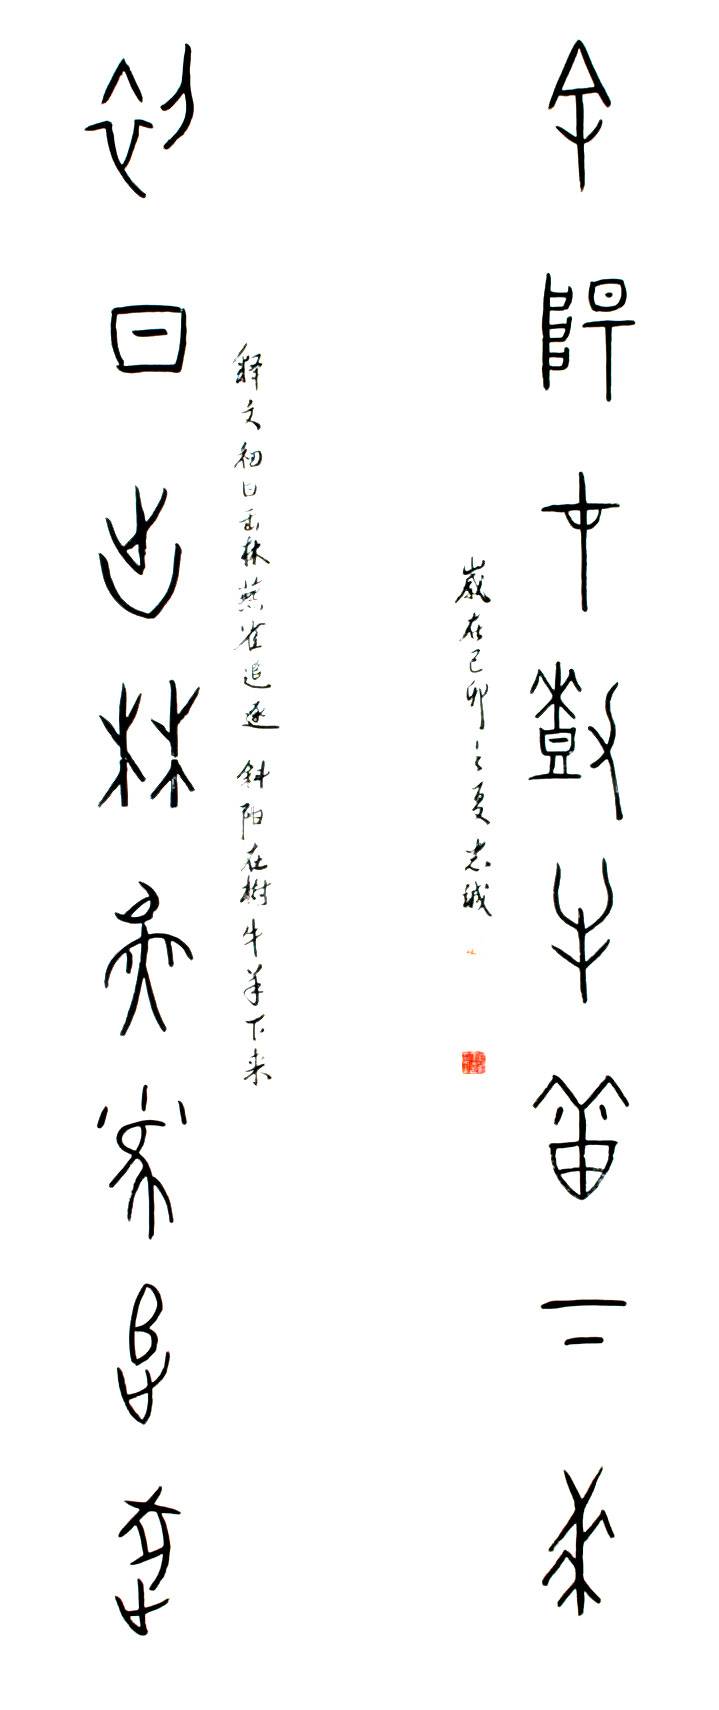 初日出林燕雀追逐
释文初日出林燕雀追逐 斜阳在樹牛羊下来
歲在己卯之夏忠诚
斜陽在樹牛羊下來